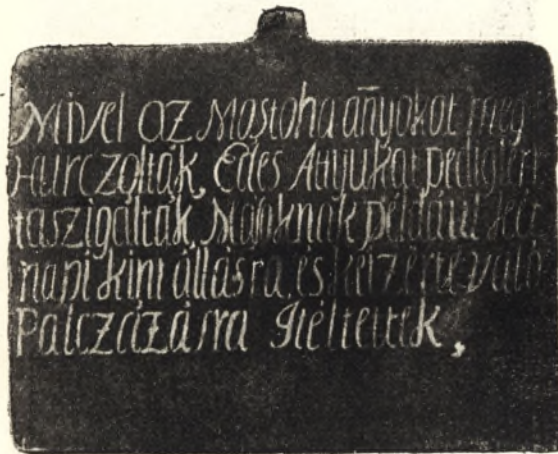 Mivel az Mostoha añyokat meg
Hurczolták, Édes Attyukat pedig
taszigálták, Másoknak például két
napi kint állásra, és kétzeri való
Pálczázásra Itéltettek,